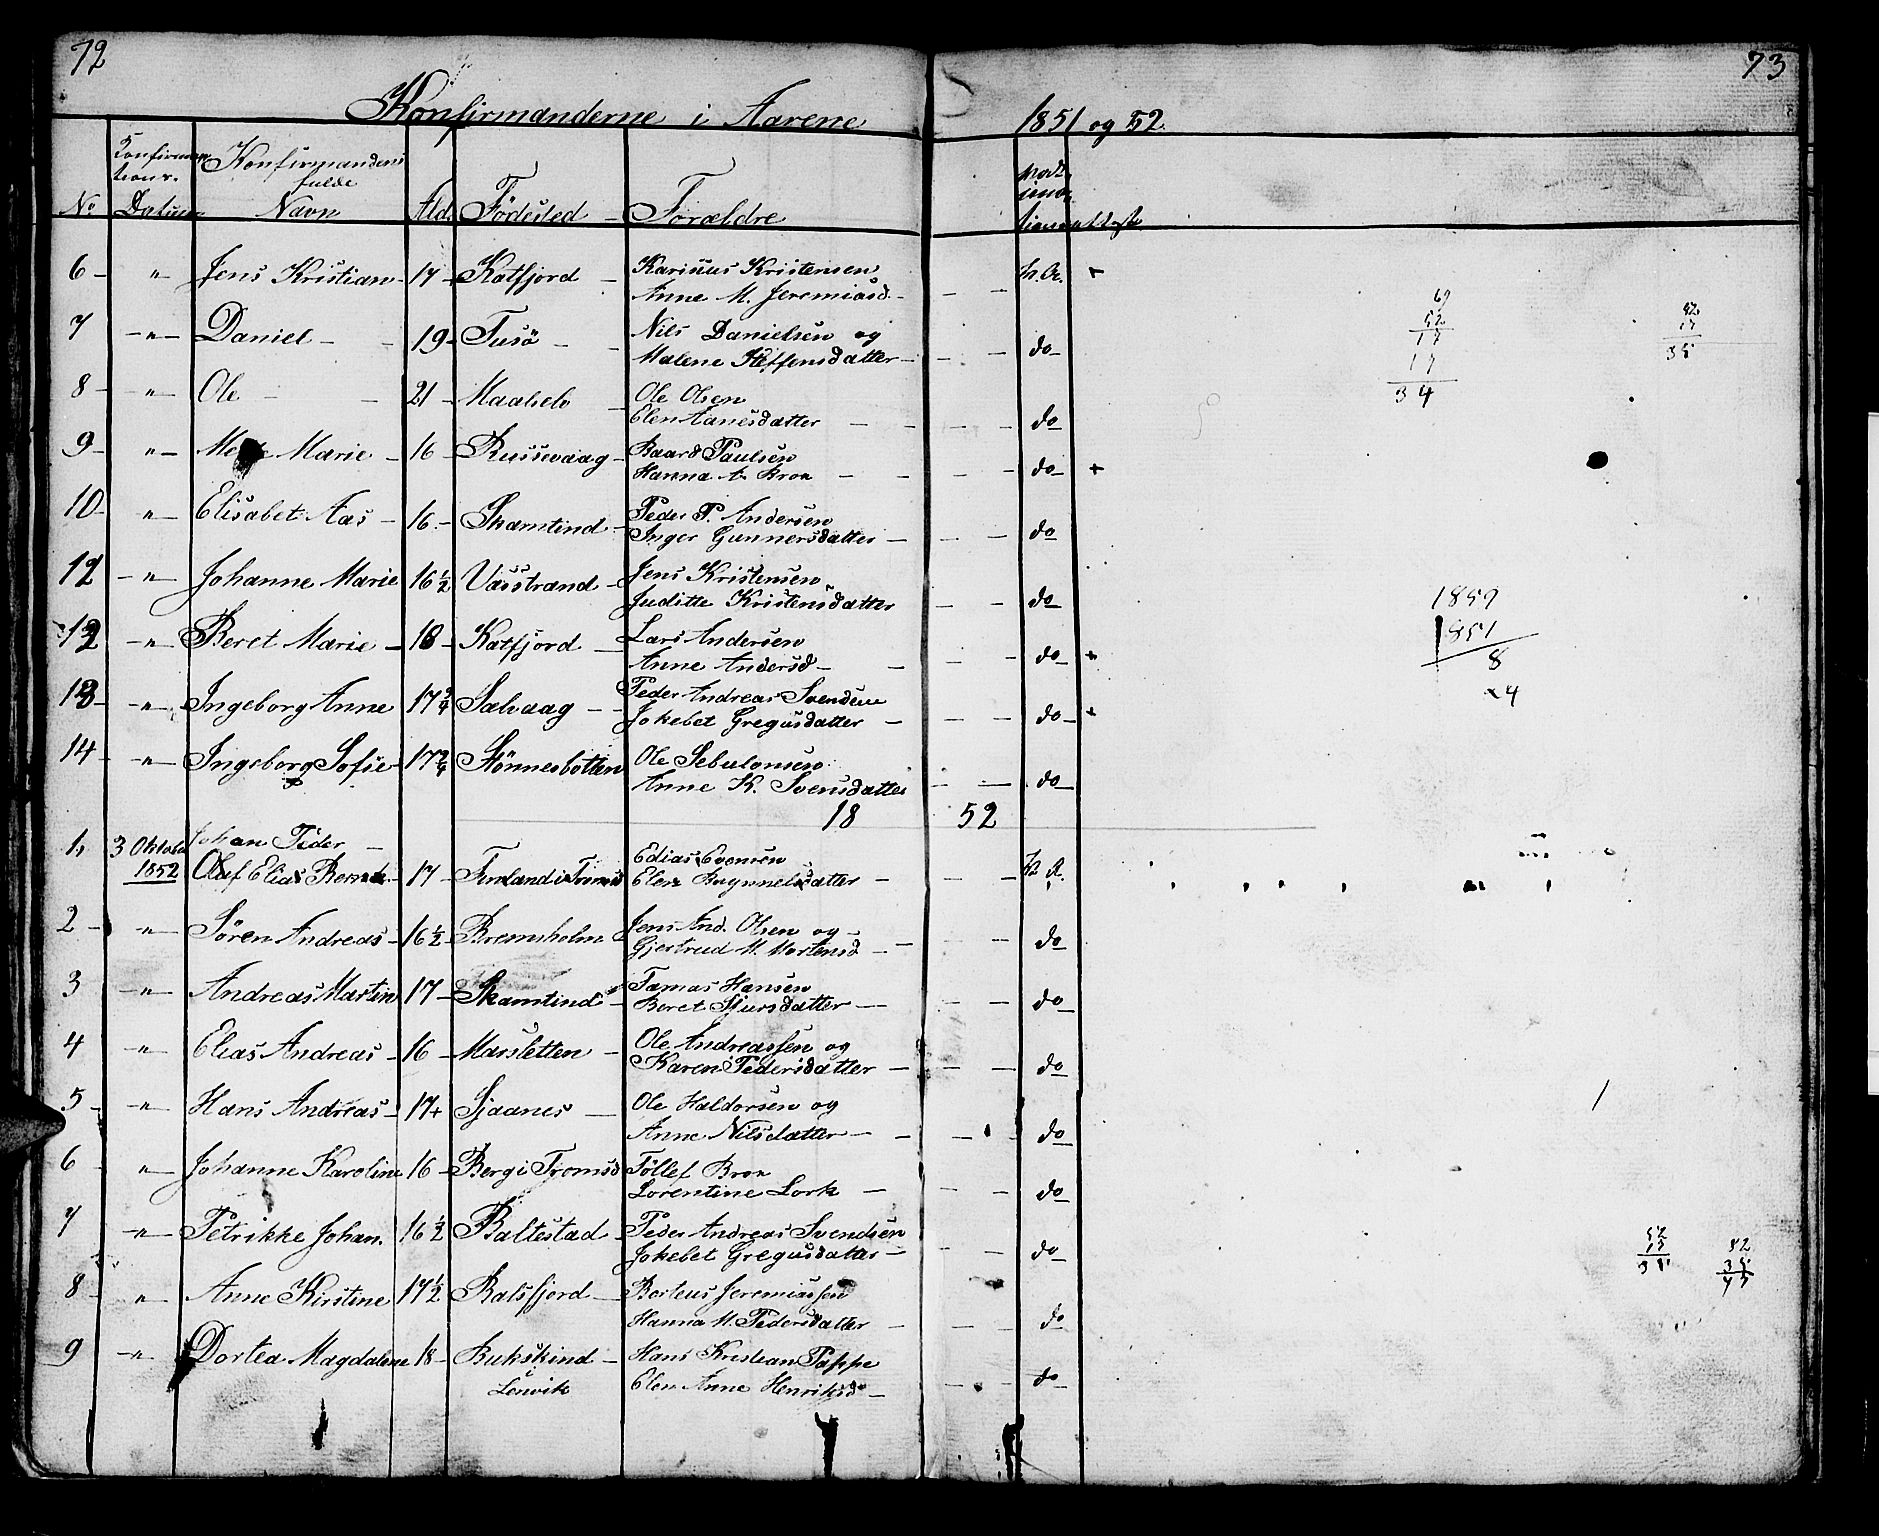 72
73
Konfirmanderne i Aarene 1851 og 52.
No
Konfirman
tions.
Datum
Konfirmandens
fulde
Navn
Ald.
Födested
Forældre
6 - " - Jens Kristian - 17 - Katfjord - Karinus Kristensen
Anne M. Jeremiasd. - h. Oe. +
7 - " - Daniel - 19 - Tusö - Nils Danielsen og
Malene Steffensdatter - do
8 - " - Ole - 21 - Maalselv - Ole Olsen
Elen Aanesdatter - do
9 - " - Marie - 16 - Russevaag - Baard Paulsen
Hanna A. Brox - do +
10 - " - Elisabet Aas - 16 - Skamtind - Peder P. Andersen
Inger Gunnersdatter - do
12 - " - Johanne Marie 16 1/2 Vasstrand - Jens Kristensen
Juditte Kristensdatter - do
12 - " - Beret Marie - 18 - Katfjord - Lars Andersen
Anne Andersd - do +
13 - " - Ingeborg Anne 17 3/4 Sælvaag - Peder Andreas Svendsen
Jokebet Gregusdatter - do +
14 - " - Ingeborg Sofie 17 3/4 Stönnesbotten Ole Sebulonsen
Anne K. Svensdatter - do
18 52
1, 3 Oktober Johan Peder -
1852 Olaf Elias Bernt - 17 - Finland i Tromsö Edias Evensen
Elen Brynnelsdatter -
2 - " - Sören Andreas - 16 1/2 Bremsholm Jens And. Olsen og -
Gjertrud M. Mortensd - do
3 - " - Andreas Martin 17 - Skamtind - Tamas Hansen
Beret Sjursdatter - do
4 - " - Elias Andreas - 16 - Marsletten - Ole Andreassen og
Karen Pedersdatter - do
5 - " - Hans Andreas - 17+ Sjaanes - Ole Haldorsen og
Anne Nilsdatter - do
6 - " - Johanne Karoline 16 - Berg i Tromsö Töllef Brox
Lorentine Lork - do
7 - " - Petrikke Johan. 16 1/2 Baltestad - Peder Andreas Svendsen
Jokebet Gregusdatter - do
8 - " - Anne Kirstine 17 1/2 Balsfjord - Borteus Jeremiassen
Hanna M. Pedersdatter - do
9 - " - Dortea Magdalene 18 - Bukskind - Hans Kristian Pappe
Lenvik Elen Anne Henriksd - do
69
52
17
17
34
52
17
35
1859
1851
8
x4
52
17
35
82
35
47